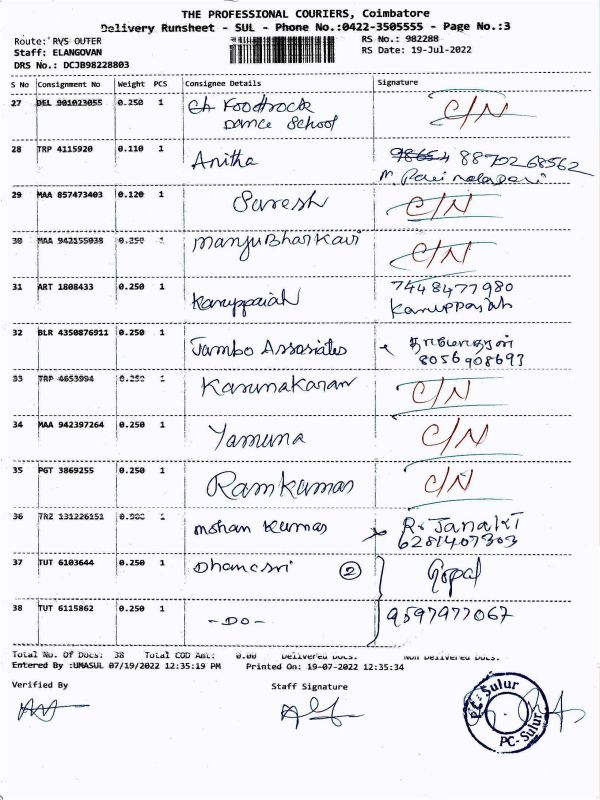 THE PROFESSIONAL COURIERS, Coimbatore
Delivery Runsheet - SUL - Phone No.:0422-3505555 - Page No.:3
Route: RVS OUTER
RS No.: 982288
Staff: ELANGOVAN
RS Date: 19-Jul-2022
DRS No.: DCJB98228803
S No Consignment No Weight PCS Consignee Details Signature
27 DEL 901023055 0.250 1 Foodrock C/N
Dance School
28 TRP 4115920 0.110 1 Anitha 8870268562
29 MAA 857473403 0.120 1 Suresh C/N
30 MAA 942155038 0.250 1 ManjuBharkavi C/N
31 ART 1808433 0.250 1 Karuppaiah 7448477980
Karuppaiah
32 BLR 4350876911 0.250 1 Jambo Assosiates
8056908693
33 TRP 4653994 0.250 1 Karunakaran C/N
34 MAA 942397264 0.250 1 Yamuna C/N
35 PGT 3869255 0.250 1 Ramkumar C/N
36 TRZ 131226151 0.900 1 Mohan Kumar R. Janaki
6281407303
37 TUT 6103644 0.250 1 Dhanasri 2 Gopal
38 TUT 6115862 0.250 1 -DO- 9597977067
Total No. Of Docs: 38 Total COD Amt: 0.00 Delivered Docs: Non Delivered Docs:
Entered By :UMASUL 07/19/2022 12:35:19 PM Printed On: 19-07-2022 12:35:34
Verified By Staff Signature
PC-Sulur
PC-Sulur